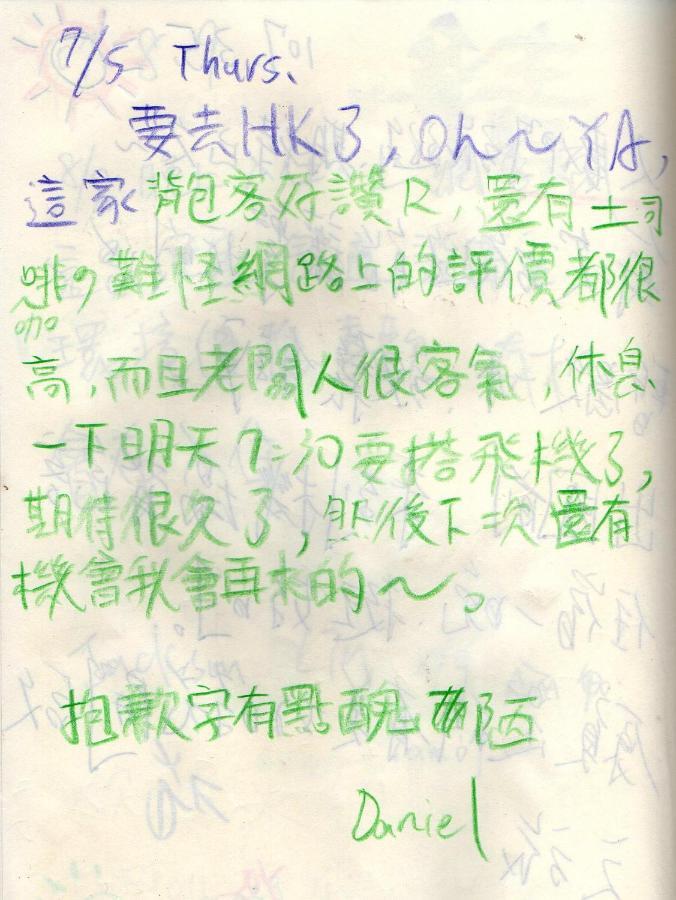 7/5 Thurs.
要去HK了,Oh~YA,
這家背包客好讚R,還有土司
咖啡,難怪網路上的評價都很
高,而且老闆人很客氣,休息
一下明天7:30要搭飛機了,
期待很久了,然後下次還有
機會我會再來的~。
抱歉字有點醜 陋
Daniel